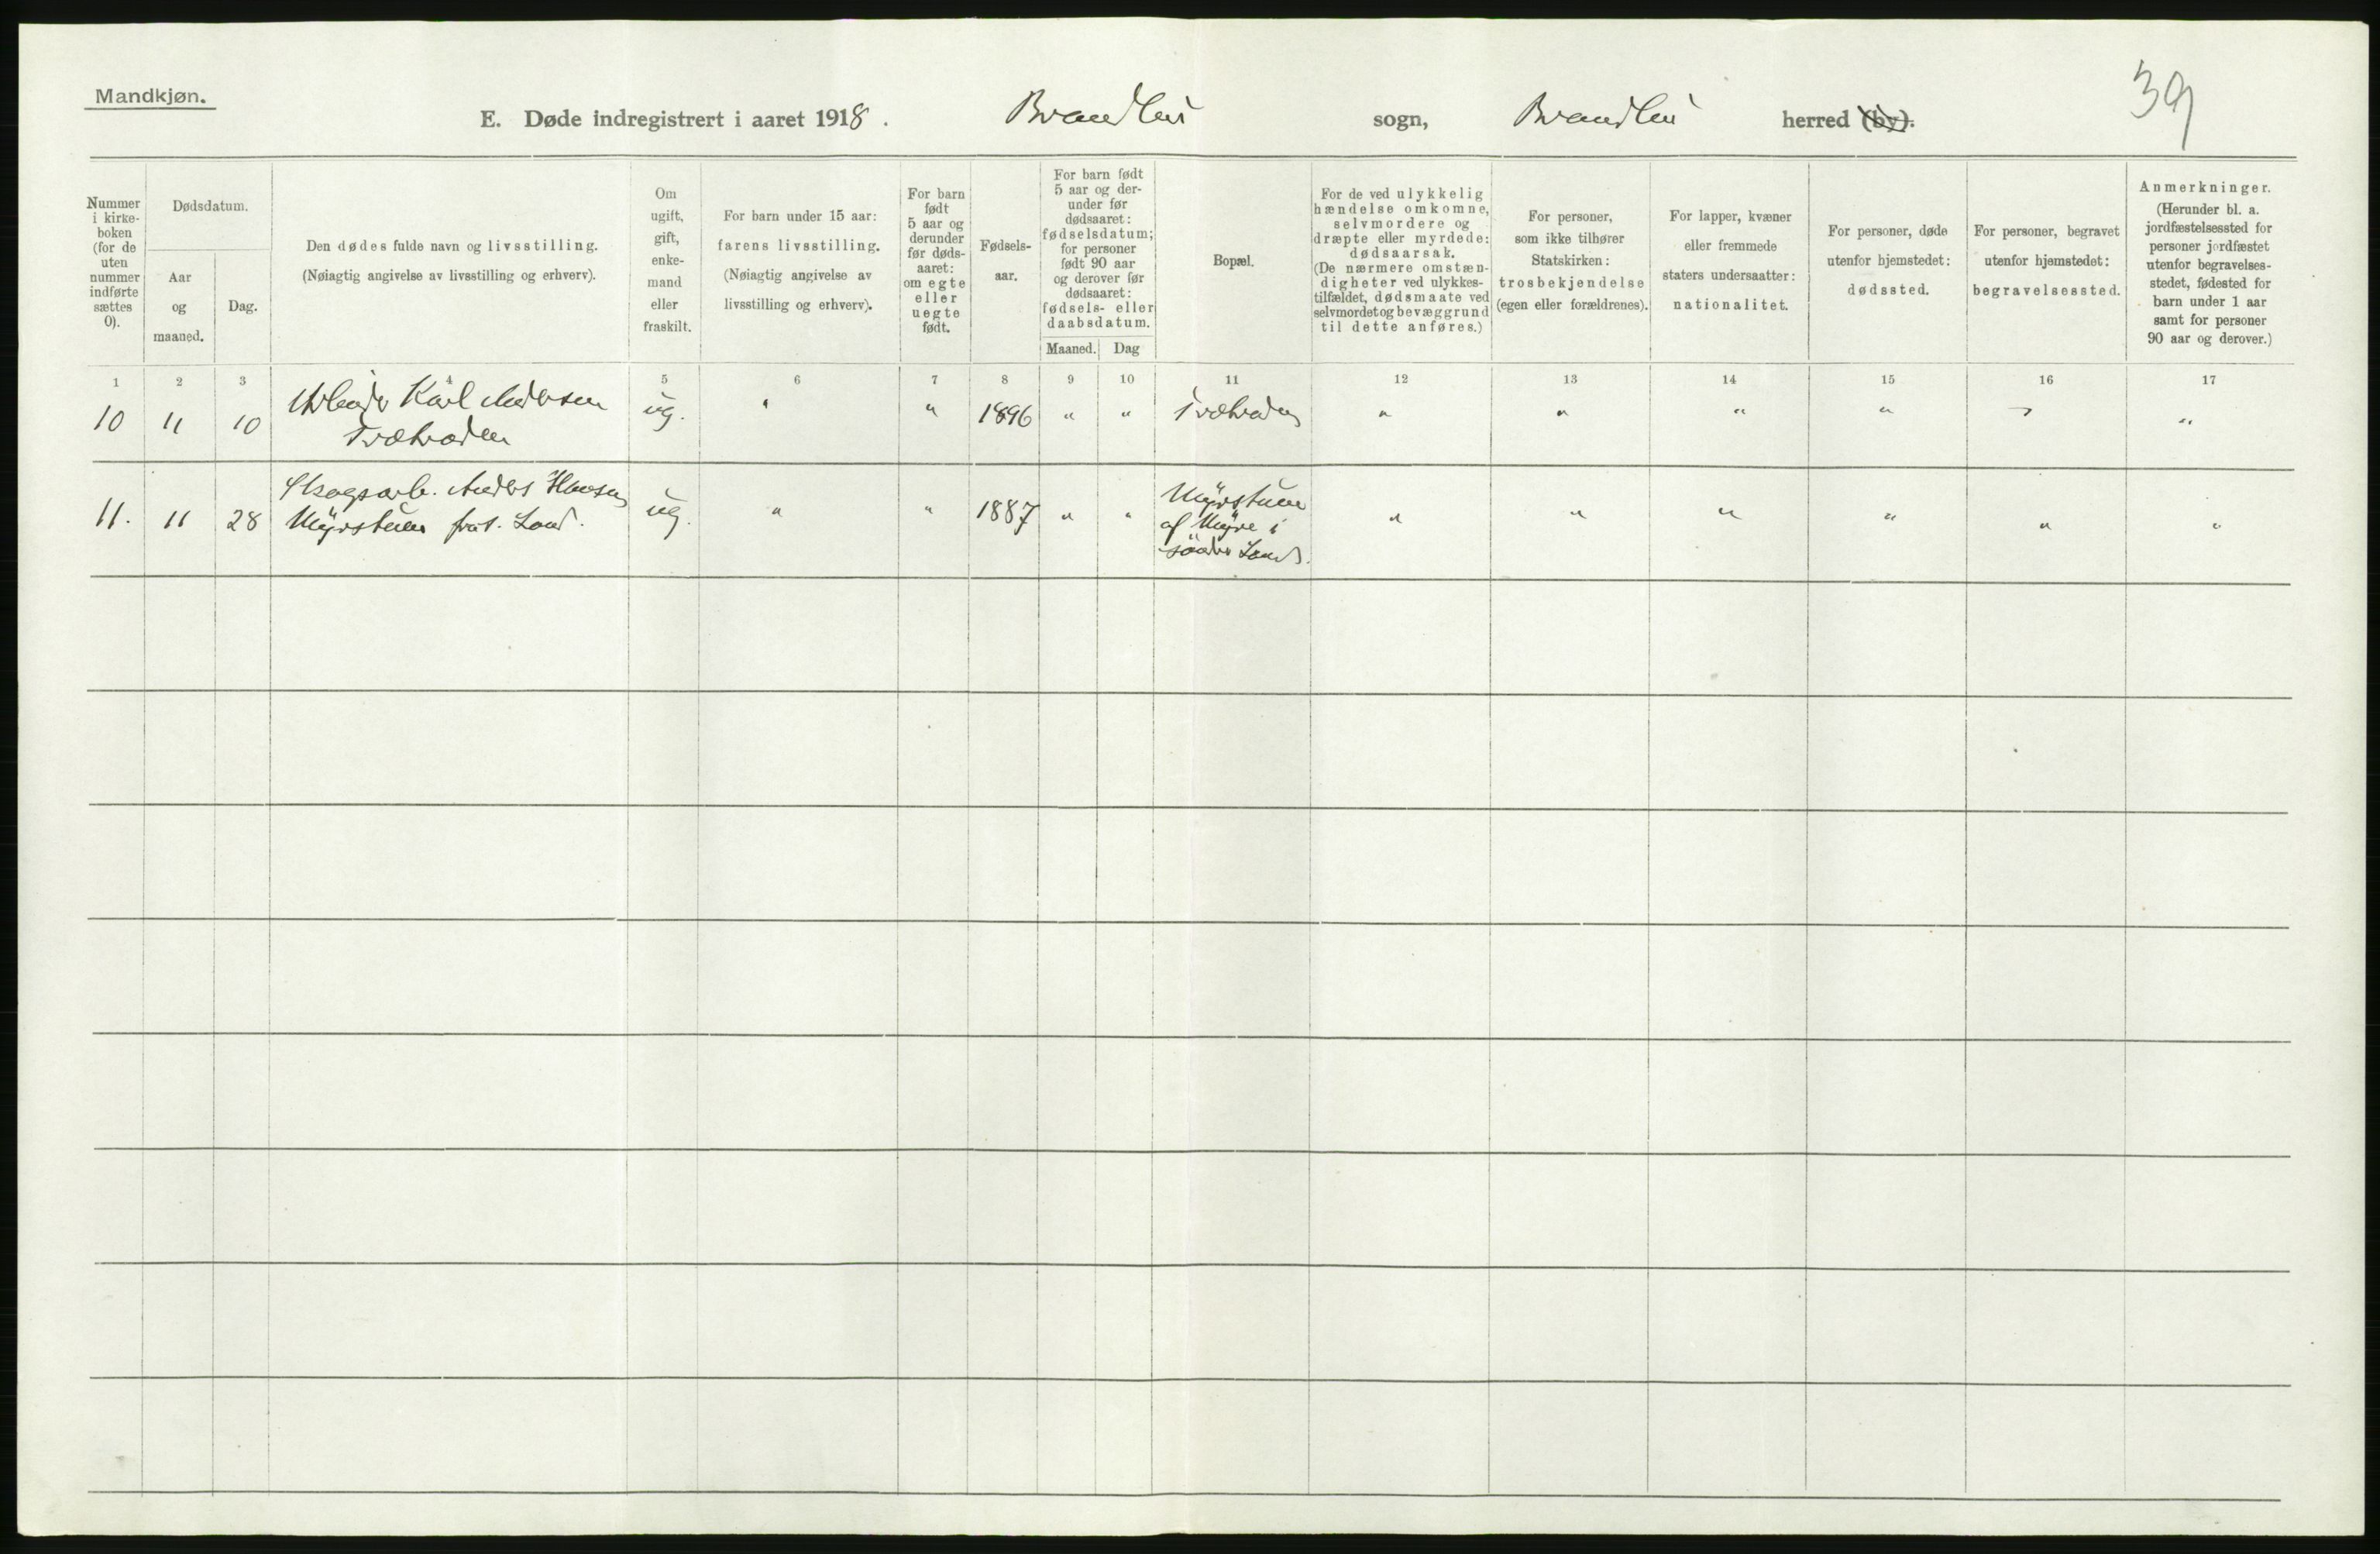 Mandkjøn.
39
E. Døde indregistrert i aaret 1918. Brandbu sogn, Brandbu herred (by).
Nummer
i kirke-
boken
(for de
uten
nummer
indførte
sættes
0).
Dødsdatum.
Aar
og
maaned.
Dag.
Den dødes fulde navn og livsstilling.
(Nøiagtig angivelse av livsstilling og erhverv).
Om
ugift,
gift,
enke-
mand
eller
fraskilt.
For barn under 15 aar:
farens livsstilling.
(Nøiagtig angivelse av
livsstilling og erhverv).
For barn
født
5 aar og
derunder
før døds-
aaret:
om egte
eller
uegte
født.
Fødsels-
aar.
For barn født
5 aar og der-
under før
dødsaaret:
fødselsdatum;
for personer
født 90 aar
og derover før
dødsaaret:
fødsels- eller
daabsdatum.
Maaned. Dag
Bopæl.
For de ved ulykkelig
hændelse omkomne,
selvmordere og
dræpte eller myrdede:
dødsaarsak.
(De nærmere omstæn-
digheter ved ulykkes-
tilfældet, dødsmaate ved
selvmordet og bevæggrund
til dette anføres.)
For personer,
som ikke tilhører
Statskirken:
trosbekjendelse
(egen eller forældrenes).
For lapper, kvæner
eller fremmede
staters undersaatter:
nationalitet.
For personer, døde
utenfor hjemstedet:
dødssted.
For personer, begravet
utenfor hjemstedet:
begravelsessted.
Anmerkninger.
(Herunder bl. a.
jordfæstelsessted for
personer jordfæstet
utenfor begravelses-
stedet, fødested for
barn under 1 aar
samt for personer
90 aar og derover.)
1 2 3 4 5 6 7 8 9 10 11 12 13 14 15 16 17
10 11 10 Arbeider Karl Andersen ug. " " 1896 " " " " " " "
11. 11 28 Skogsarb. Anders Hansen ug. " " 1887 " " Myrstuen " " " " " "
Myrstuen fra s. Land.
af Myre i
søndre Land.